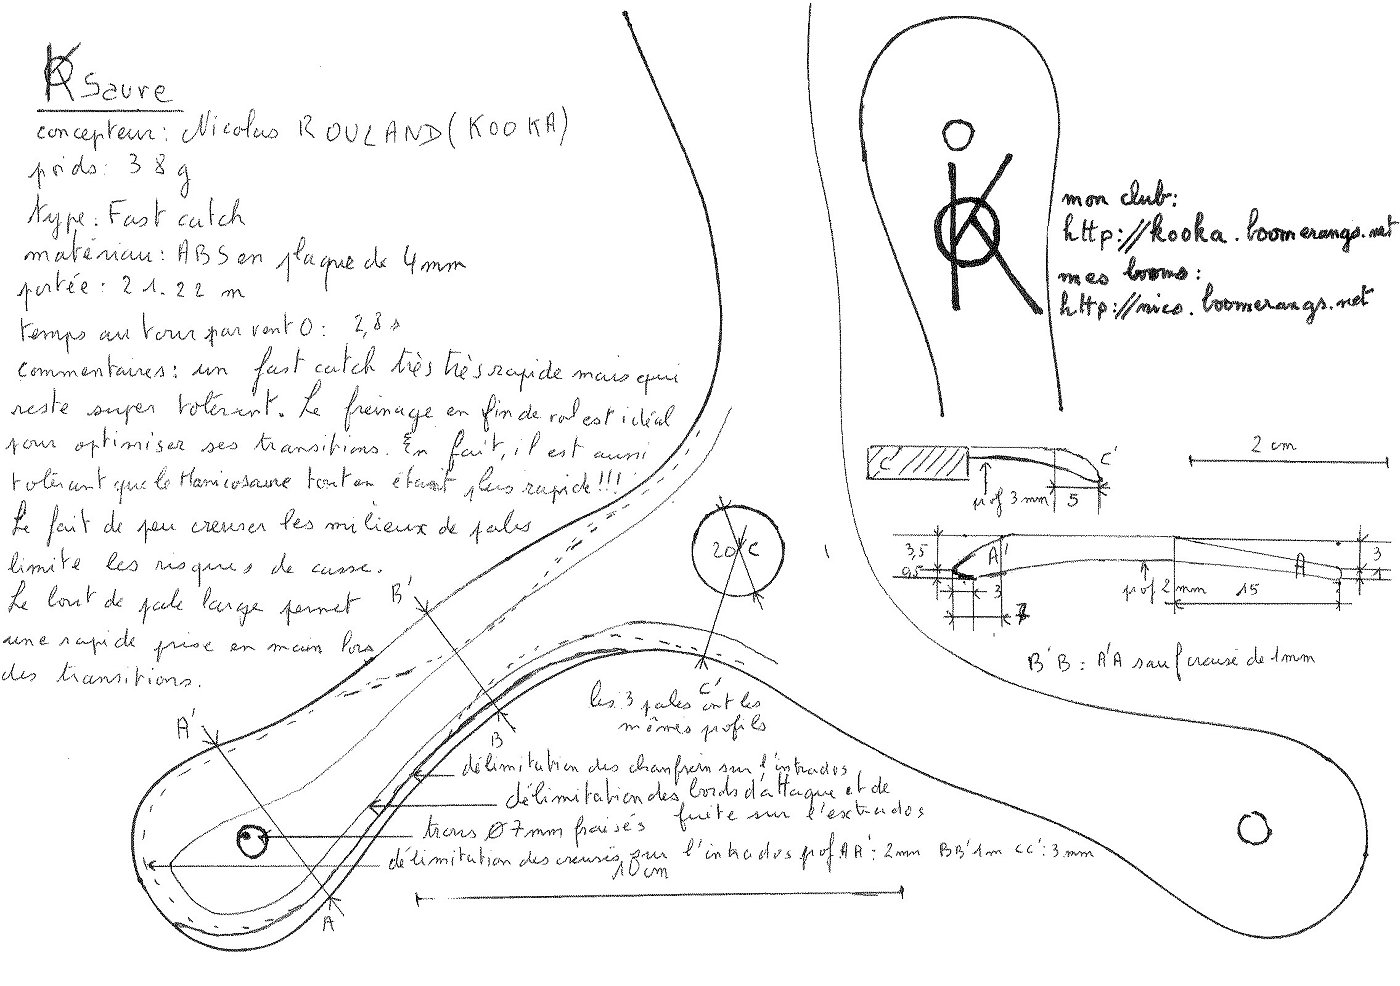 K Saure
concepteur: Nicolas ROULAND (KOOKA)
poids: 38 g
type: Fast catch
matériau: ABS en plaque de 4mm
portée: 21.22 m
temps au tour par vent 0: 2,8 s
commentaires: un fast catch très très rapide mais qui
reste super tolérant. Le freinage en fin de vol est idéal
pour optimiser ses transitions. En fait, il est aussi
tolérant que le Manicosaure tout en étant plus rapide!!!
Le fait de peu creuser les milieux de pales
limite les risques de casse.
Le bout de pale large permet
une rapide prise en main lors
des transitions.
K
mon club:
http://kooka.boomerangs.net
mes booms:
http://nico.boomerangs.net
2 cm
C C'
prof 3 mm 5
3,5 A' A 3
0,5 1
3 prof 2 mm 15
B'B: A'A sauf creusé de 1mm
20 C
C'
B'
B
A'
A
les 3 pales ont les
mêmes profils
délimitation des chanfrein sur l'intrados
délimitation des bords d'attaque et de
fuite sur l'extrados
trous Ø 7mm fraisés
délimitation des creusés sur l'intrados prof AA': 2mm BB' 1m CC': 3mm
10 cm